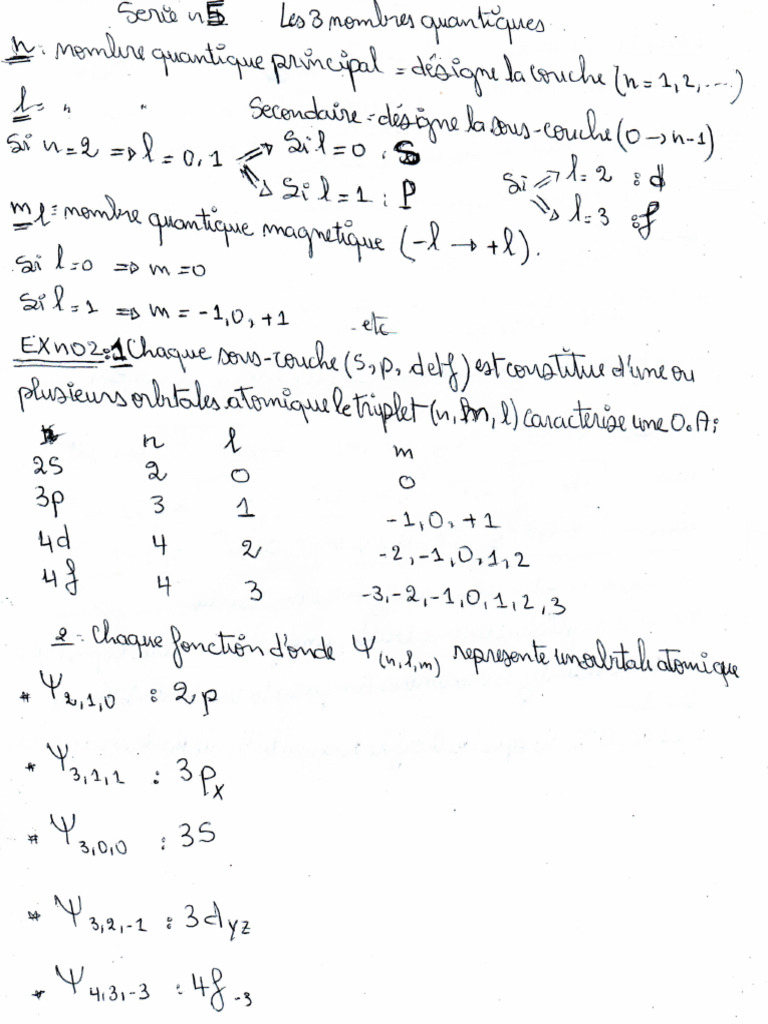 Serie n5 Les 3 nombres quantiques
n : nombre quantique principal = désigne la couche (n=1,2,....)
l = " " Secondaire = désigne la sous-couche (0 → n-1)
Si n=2 => l = 0,1 Si l=0 : S
Si l=1 : P
Si l=2 : d
l=3 : f
ml = nombre quantique magnetique (-l → +l).
Si l=0 => m=0
Si l=1 => m = -1,0,+1 -etc
EXn02:1 Chaque sous-couche (s,p,d et f) est constitue d'une ou
plusieurs orbitales atomique le triplet (n,m,l) caracterise une O.A:
n l m
2S 2 0 0
3p 3 1 -1,0,+1
4d 4 2 -2,-1,0,1,2
4f 4 3 -3,-2,-1,0,1,2,3
2- Chaque fonction d'onde Ψ(n,l,m) represente un orbitale atomique
* Ψ2,1,0 : 2p
* Ψ3,1,1 : 3px
* Ψ3,0,0 : 3S
* Ψ3,2,-1 : 3dyz
* Ψ4,3,-3 : 4f-3